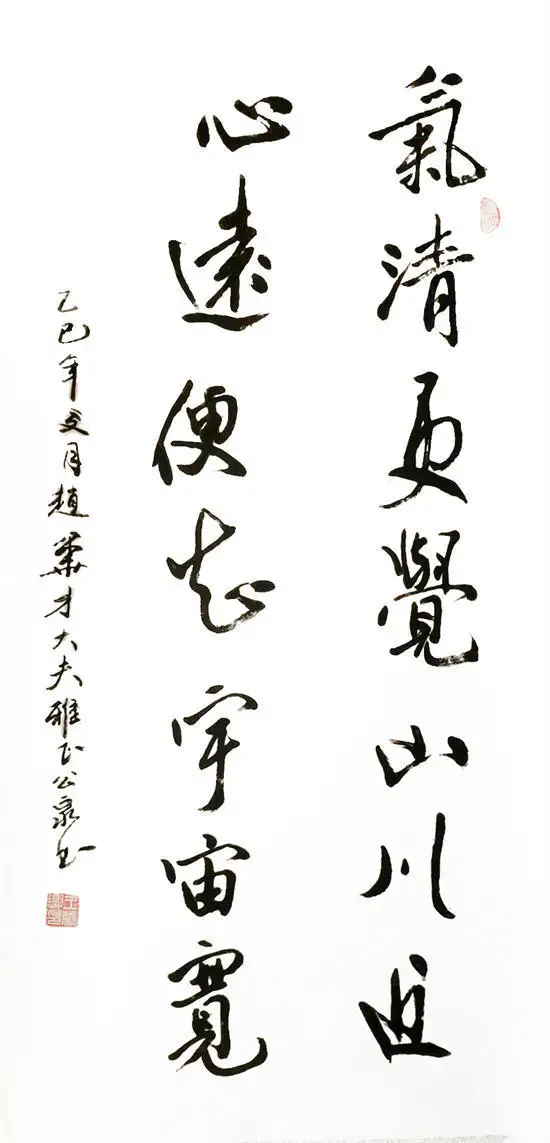 氣清更覺山川近
心遠便知宇宙寬
乙巳年文月趙華才大夫雅正公泉书